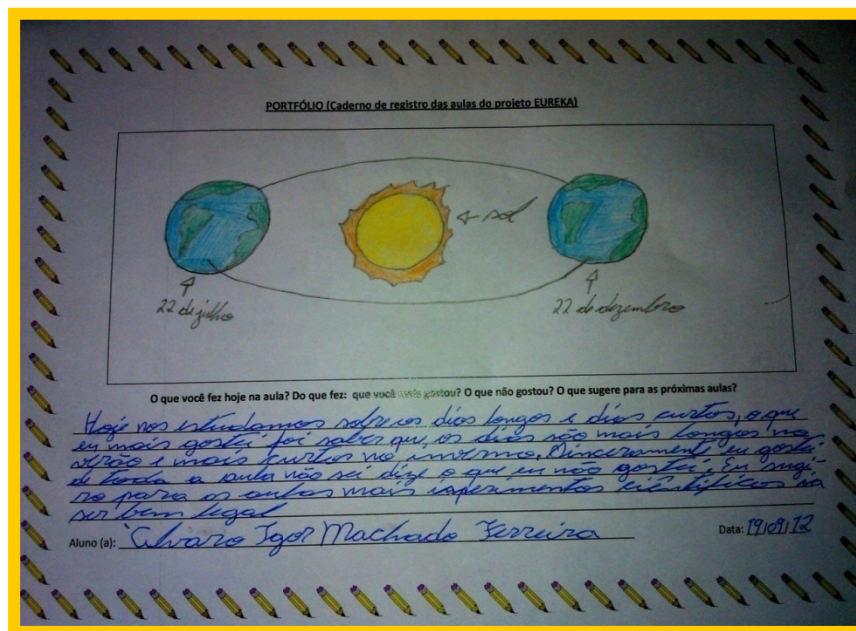 PORTFÓLIO (Caderno de registro das aulas do projeto EUREKA)
sol
22 de julho
22 de dezembro
O que você fez hoje na aula? Do que fez: que você mais gostou? O que não gostou? O que sugere para as próximas aulas?
Hoje nos estudamos sobre os dias longos e dias curtos, o que
eu mais gostei foi saber que, os dias são mais longos no
verão e mais curtos no inverno. Sinceramente eu gostei
de toda a aula não sei dize o que eu não gostei. Eu sugi-
ro para as aulas mais isperimentos cientificos va
ser bem legal
Aluno (a): Alvaro Igor Machado Ferreira
Data: 19/09/12